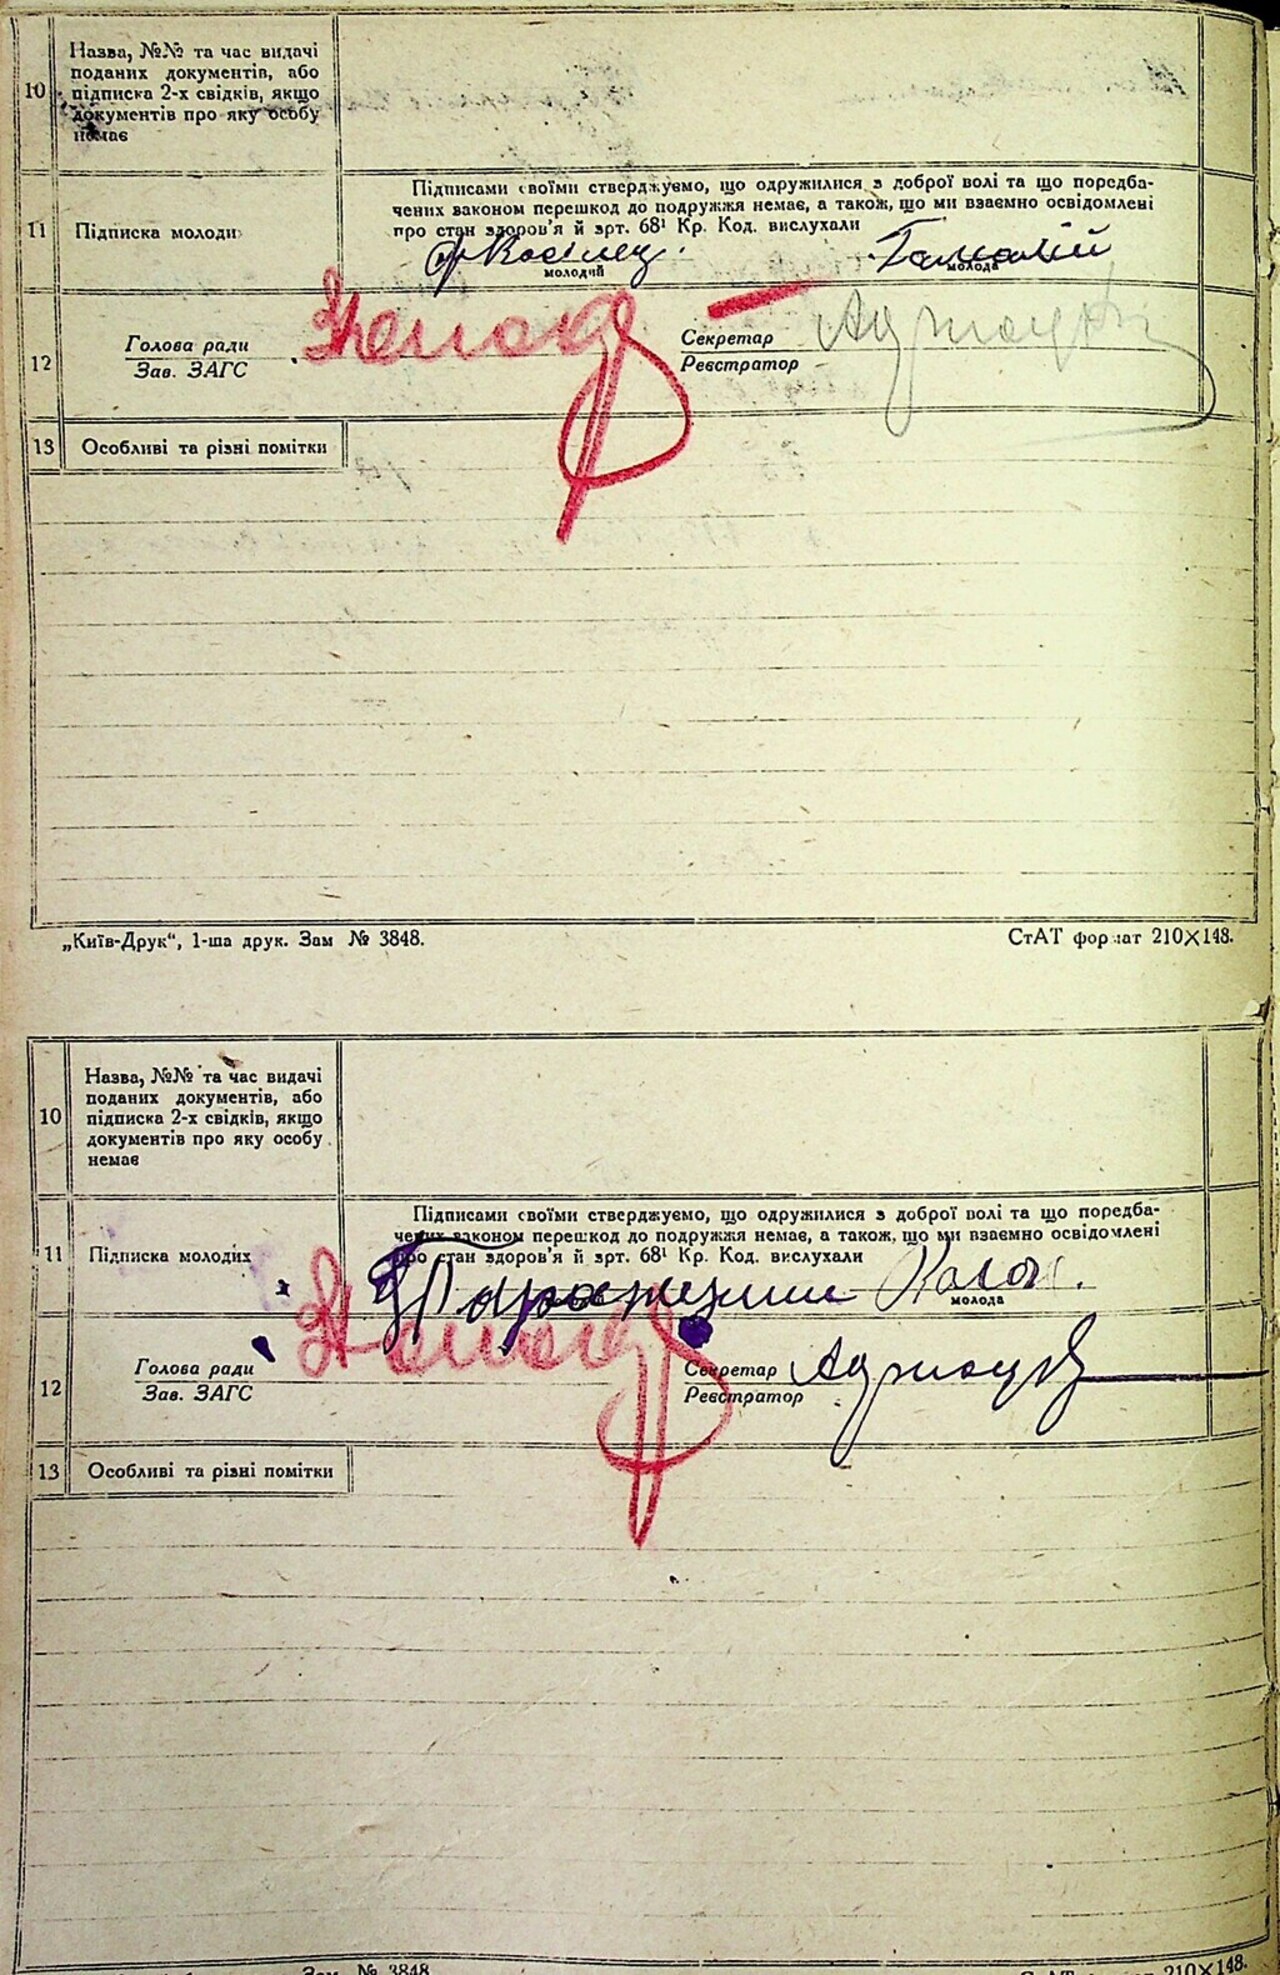 10
Назва, №№ та час видачі
поданих документів, або
підписка 2-х свідків, якщо
документів про яку особу
немає
11
Підписка молоди
Підписами своїми стверджуємо, що одружилися з доброї волі та що поредба-
чених законом перешкод до подружжя немає, а також, що ми взаємно освідомлені
про стан здоров'я й зрт. 68¹ Кр. Код. вислухали
молодий
молода
12
Голова ради
Зав. ЗАГС
Секретар
Реєстратор
13
Особливі та різні помітки
„Київ-Друк“, 1-ша друк. Зам № 3848.
СтАТ формат 210×148.
10
Назва, №№ та час видачі
поданих документів, або
підписка 2-х свідків, якщо
документів про яку особу
немає
11
Підписка молодих
Підписами своїми стверджуємо, що одружилися з доброї волі та що поредба-
чених законом перешкод до подружжя немає, а також, що ми взаємно освідомлені
про стан здоров'я й зрт. 68¹ Кр. Код. вислухали
молода
12
Голова ради
Зав. ЗАГС
Секретар
Реєстратор
13
Особливі та різні помітки
Зам. № 3848
210×148.